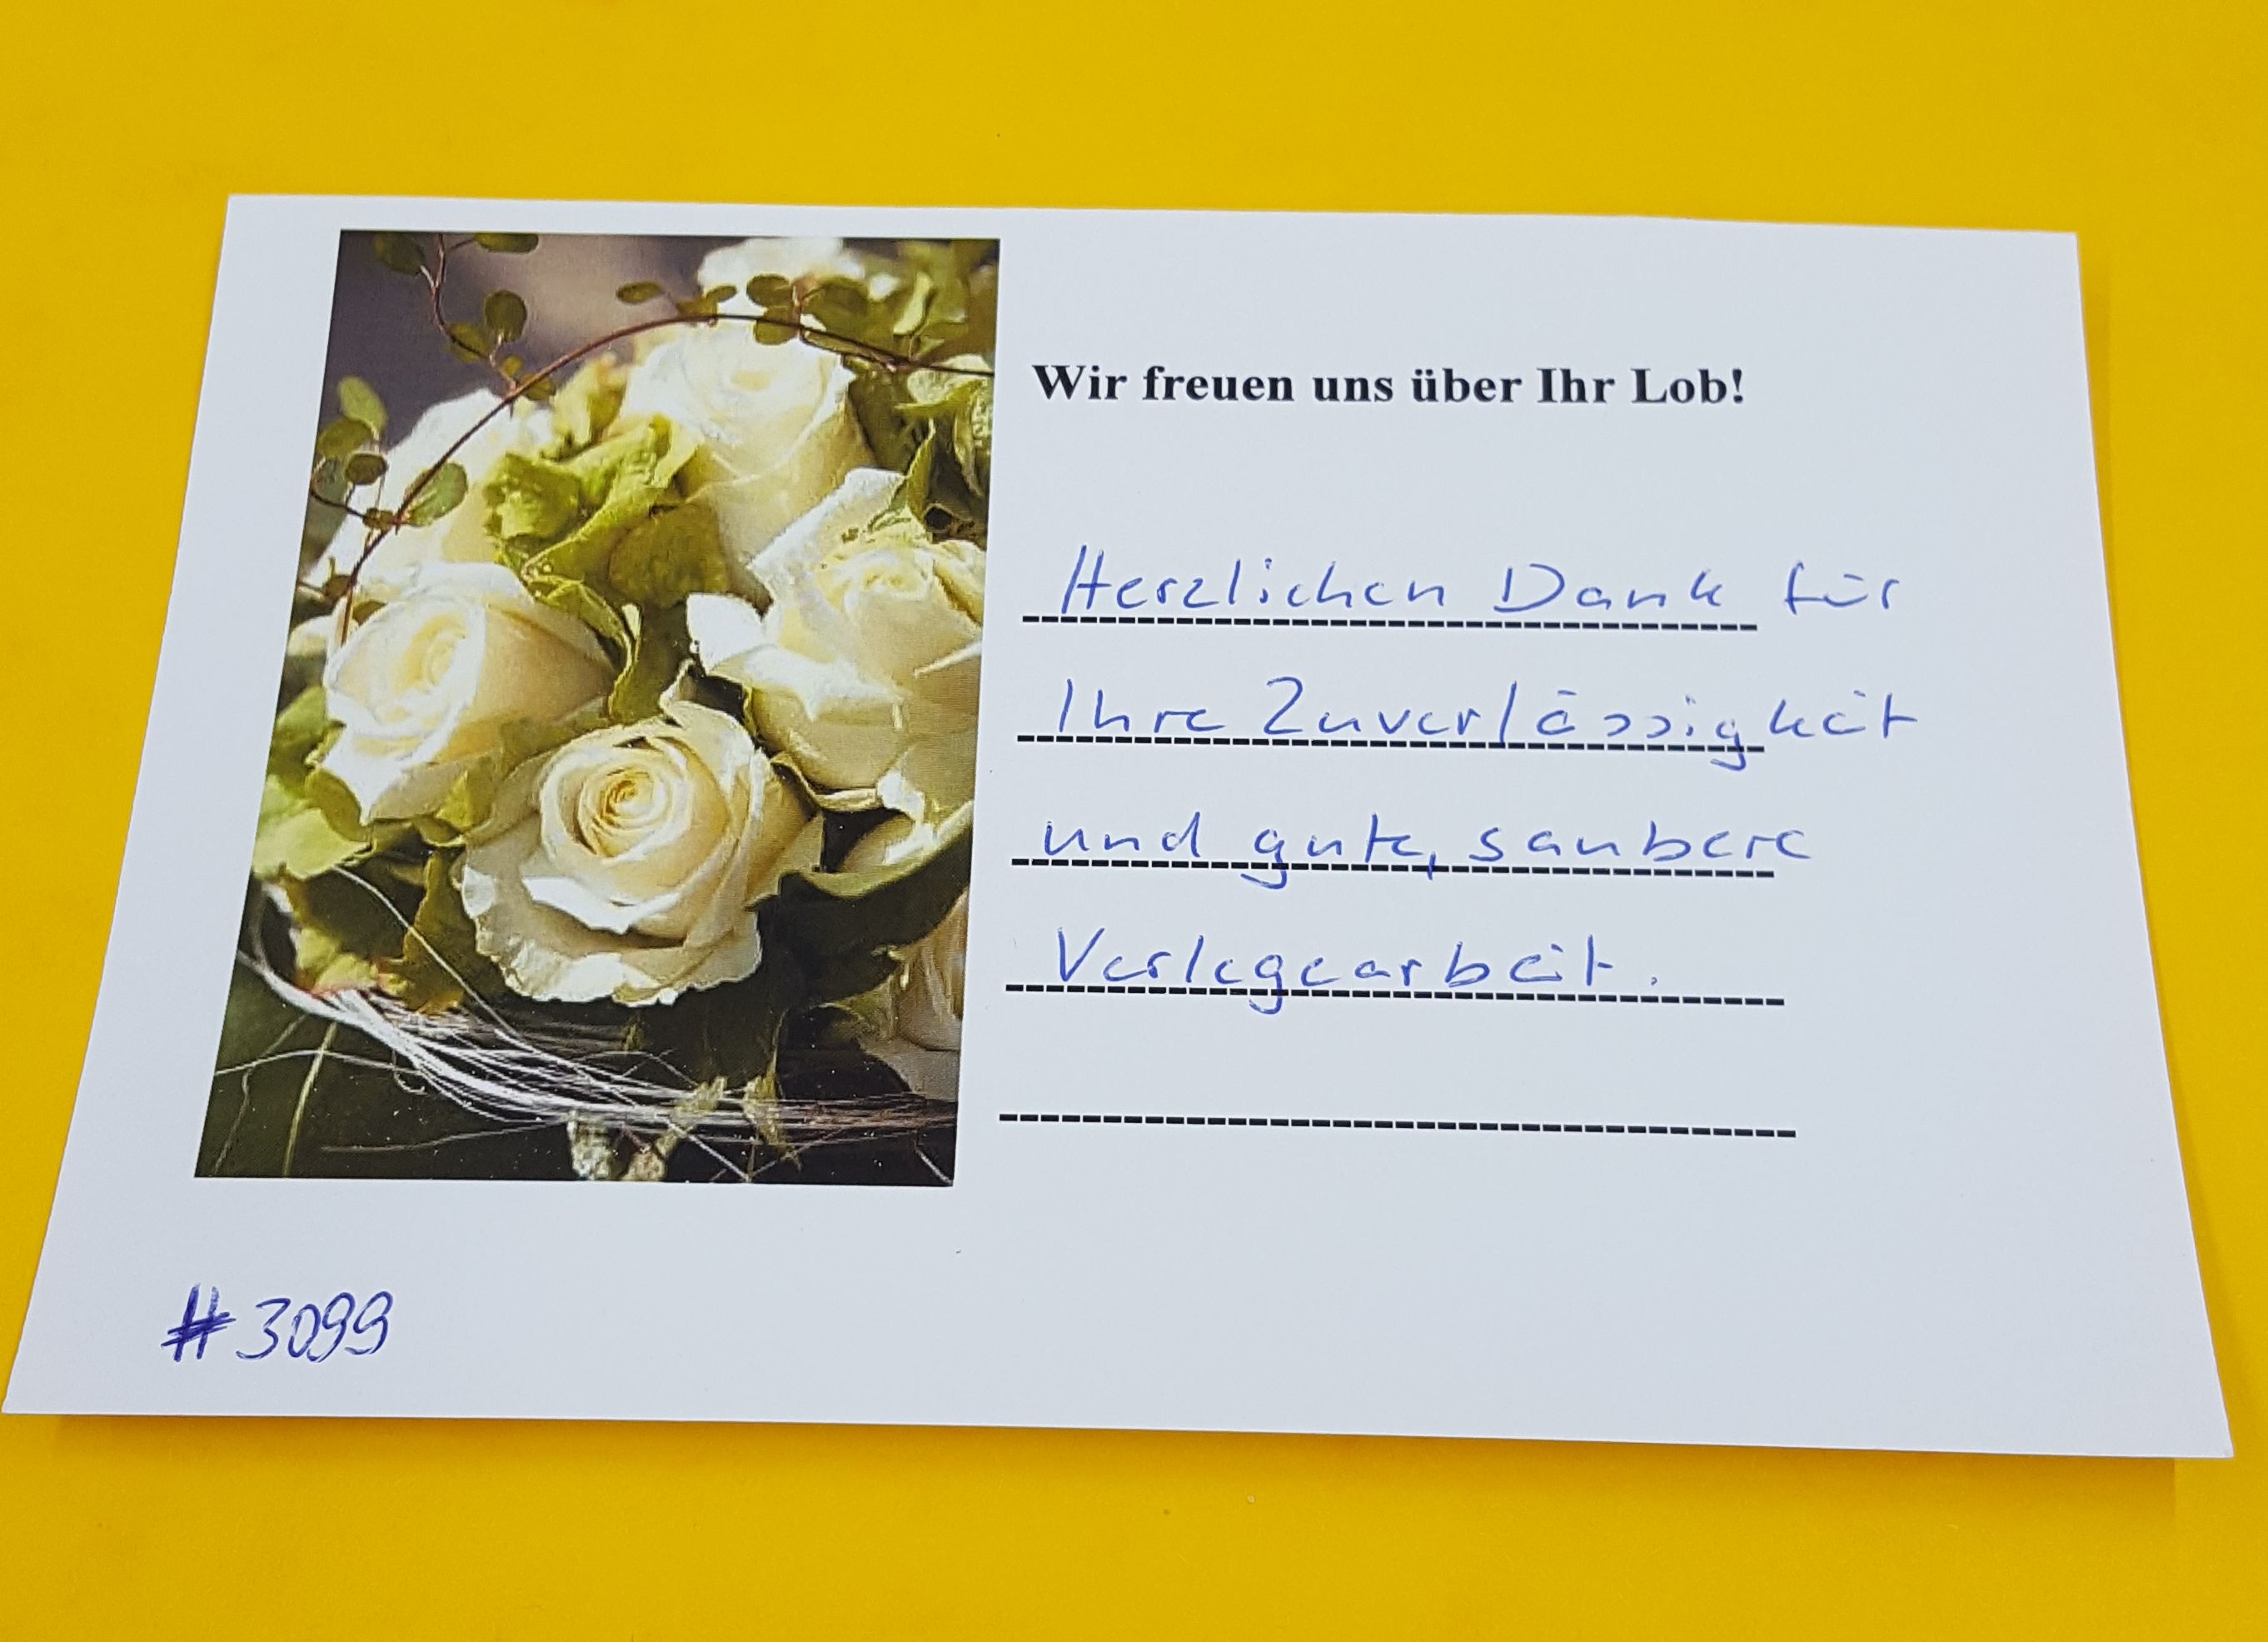 Wir freuen uns über Ihr Lob!
Herzlichen Dank für
Ihre Zuverlässigkeit
und gute, saubere
Verlegearbeit.
#3099